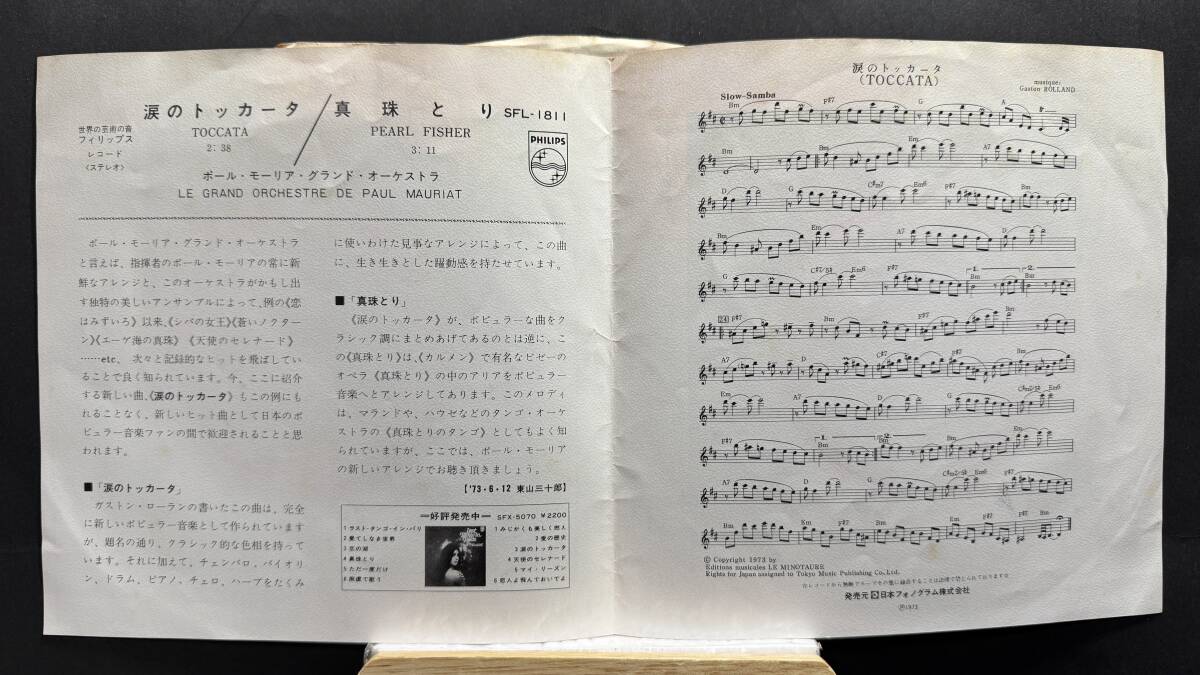 涙のトッカータ／真珠とり SFL-1811
世界の芸術の音
フィリップス
レコード
〈ステレオ〉
TOCCATA
2:38
PEARL FISHER
3:11
PHILIPS
ポール・モーリア・グランド・オーケストラ
LE GRAND ORCHESTRE DE PAUL MAURIAT
ポール・モーリア・グランド・オーケストラ
と言えば、指揮者のポール・モーリアの常に新
鮮なアレンジと、このオーケストラがかもし出
す独特の美しいアンサンブルによって、例の《恋
はみずいろ》以来、《シバの女王》《蒼いノクター
ン》《エーゲ海の真珠》《天使のセレナード》
……etc. 次々と記録的なヒットを飛ばしてい
ることで良く知られています。今、ここに紹介
する新しい曲、《涙のトッカータ》もこの例にも
れることなく、新しいヒット曲として日本のポ
ピュラー音楽ファンの間で歓迎されることと思
われます。
■「涙のトッカータ」
ガストン・ローランの書いたこの曲は、完全
に新しいポピュラー音楽として作られています
が、題名の通り、クラシック的な色相を持って
います。それに加えて、チェンバロ、バイオリ
ン、ドラム、ピアノ、チェロ、ハープをたくみ
に使いわけた見事なアレンジによって、この曲
に、生き生きとした躍動感を持たせています。
■「真珠とり」
《涙のトッカータ》が、ポピュラーな曲をク
ラシック調にまとめあげてあるのとは逆に、こ
の《真珠とり》は、《カルメン》で有名なビゼーの
オペラ《真珠とり》の中のアリアをポピュラー
音楽へとアレンジしてあります。このメロディ
は、マランドや、ハウゼなどのタンゴ・オーケ
ストラの《真珠とりのタンゴ》としてもよく知
られていますが、ここでは、ポール・モーリア
の新しいアレンジでお聴き頂きましょう。
【'73・6・12 東山三十郎】
—好評発売中— SFX-5070 ¥2200
1 ラスト・タンゴ・イン・パリ
2 愛てしなき世界
3 恋の潮
4 真珠とり
5 ただ一度だけ
6 雨に歌う
1 みじかくも美しく恋人
2 愛の歴史
3 涙のトッカータ
4 天使のセレナード
5 マイ・リーズン
6 恋人よ飛んでおいでよ
涙のトッカータ
(TOCCATA)
musique:
Gaston ROLLAND
Slow-Samba
Bm F#7 G A
Bm Bm Em A7
D G C#m7 Em6 F#7 Bm
D A7 Em
G C#7/5♭ Em6 F#7 1. Bm 2. Bm
24 F#7 Bm F#7 Bm
A7 D C#7 F#7 Bm
Em A7 D G C#m7/5♭ Em6
F#7 1. Bm 2. Bm Em
A7 D G C#m7/5♭ Em6 F#7
Bm Em F#7 Bm Em F#7 Bm
© Copyright 1973 by
Editions musicales LE MINOTAURE
Rights for Japan assigned to Tokyo Music Publishing Co., Ltd.
☆レコードから無断でテープその他に録音することは法律で禁じられております☆
発売元 日本フォノグラム株式会社
Ⓟ1973